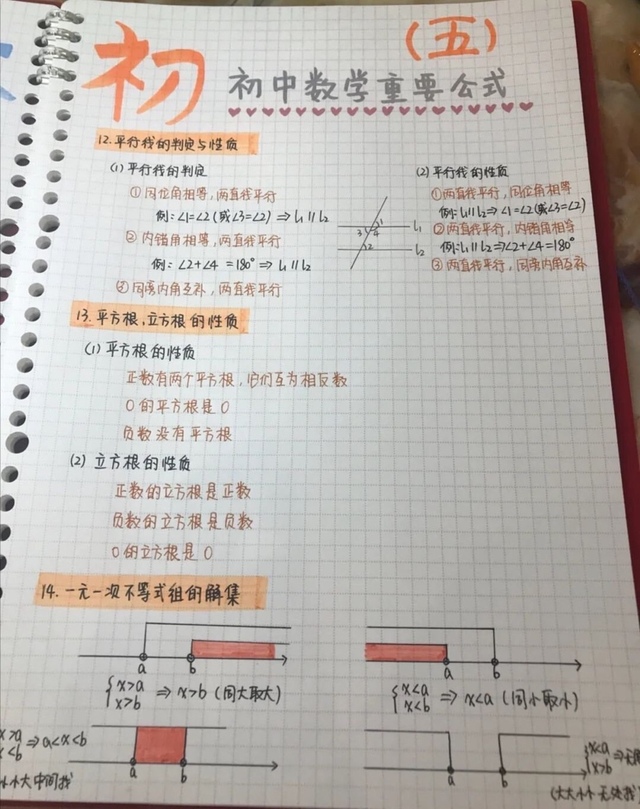 初
(五)
初中数学重要公式
12.平行线的判定与性质
(1) 平行线的判定
①同位角相等,两直线平行
例:∠1=∠2(或∠3=∠2) ⇒ l₁∥l₂
② 内错角相等,两直线平行
例: ∠2+∠4=180° ⇒ l₁∥l₂
③ 同旁内角互补,两直线平行
1
3 4
2
l₁
l₂
(2) 平行线的性质
①两直线平行,同位角相等
例:l₁∥l₂⇒∠1=∠2(或∠3=∠2)
②两直线平行,内错角相等
例:l₁∥l₂⇒∠2+∠4=180°
③ 两直线平行,同旁内角互补
13.平方根,立方根的性质
(1) 平方根的性质
正数有两个平方根,它们互为相反数
0的平方根是0
负数没有平方根
(2) 立方根的性质
正数的立方根是正数
负数的立方根是负数
0的立方根是0
14.一元一次不等式组的解集
a b
{x>a
x>b ⇒ x>b (同大取大)
a b
{x<a
x<b ⇒ x<a (同小取小)
x>a
x<b ⇒a<x<b
小大中间找
a b
{x<a
x>b ⇒无
(大大小小无处找
a b